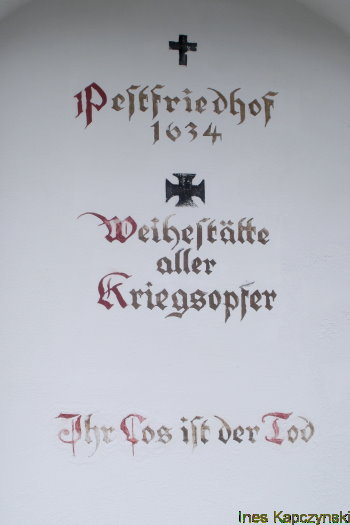 Pestfriedhof
1634
Weihestätte
aller
Kriegsopfer
Ihr Los ist der Tod
Ines Kapczynski